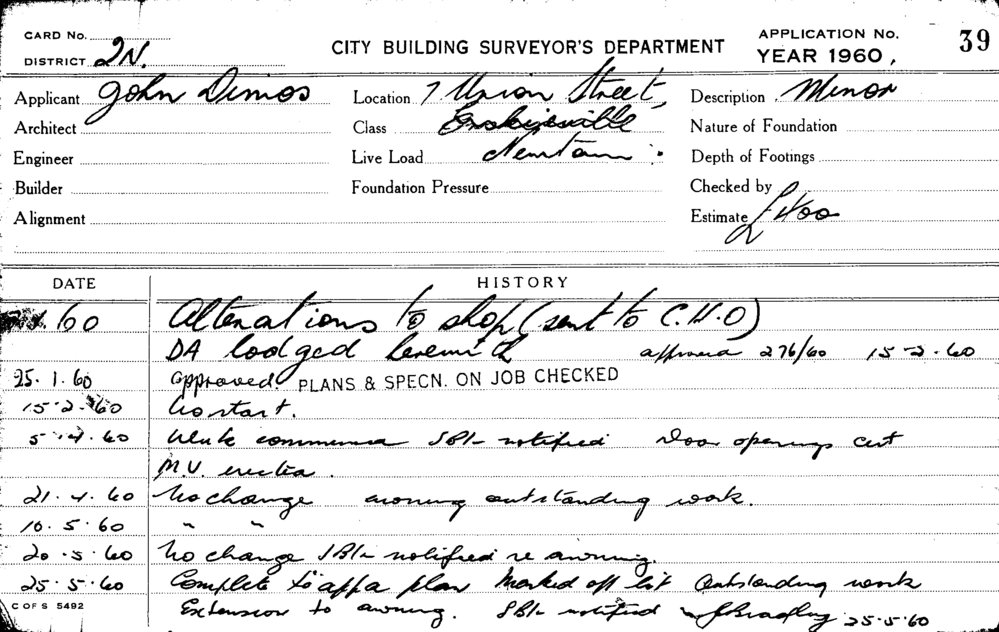 CARD No.
DISTRICT 2N.
CITY BUILDING SURVEYOR'S DEPARTMENT
APPLICATION No. 39
YEAR 1960,
Applicant John Dimos
Location 7 Union Street,
Description Minor
Architect
Class Erskineville
Nature of Foundation
Engineer
Live Load Newtown
Depth of Footings
Builder
Foundation Pressure
Checked by
Alignment
Estimate £400
DATE HISTORY
60 Alterations to shop (sent to C.H.O)
DA lodged herewith 276/60 15-2-60
25.1.60 approved PLANS & SPECN. ON JOB CHECKED
15-2-60 No start.
5.4.60 Work notified Door openings cut
M.V. erected.
21.4.60 No change awning outstanding work.
10.5.60 " "
20.5.60 No change notified re awning.
25.5.60 Complete to appd plan Marked off list Outstanding work
C OF S 5492
Extension to awning. notified J Bradley 25-5-60